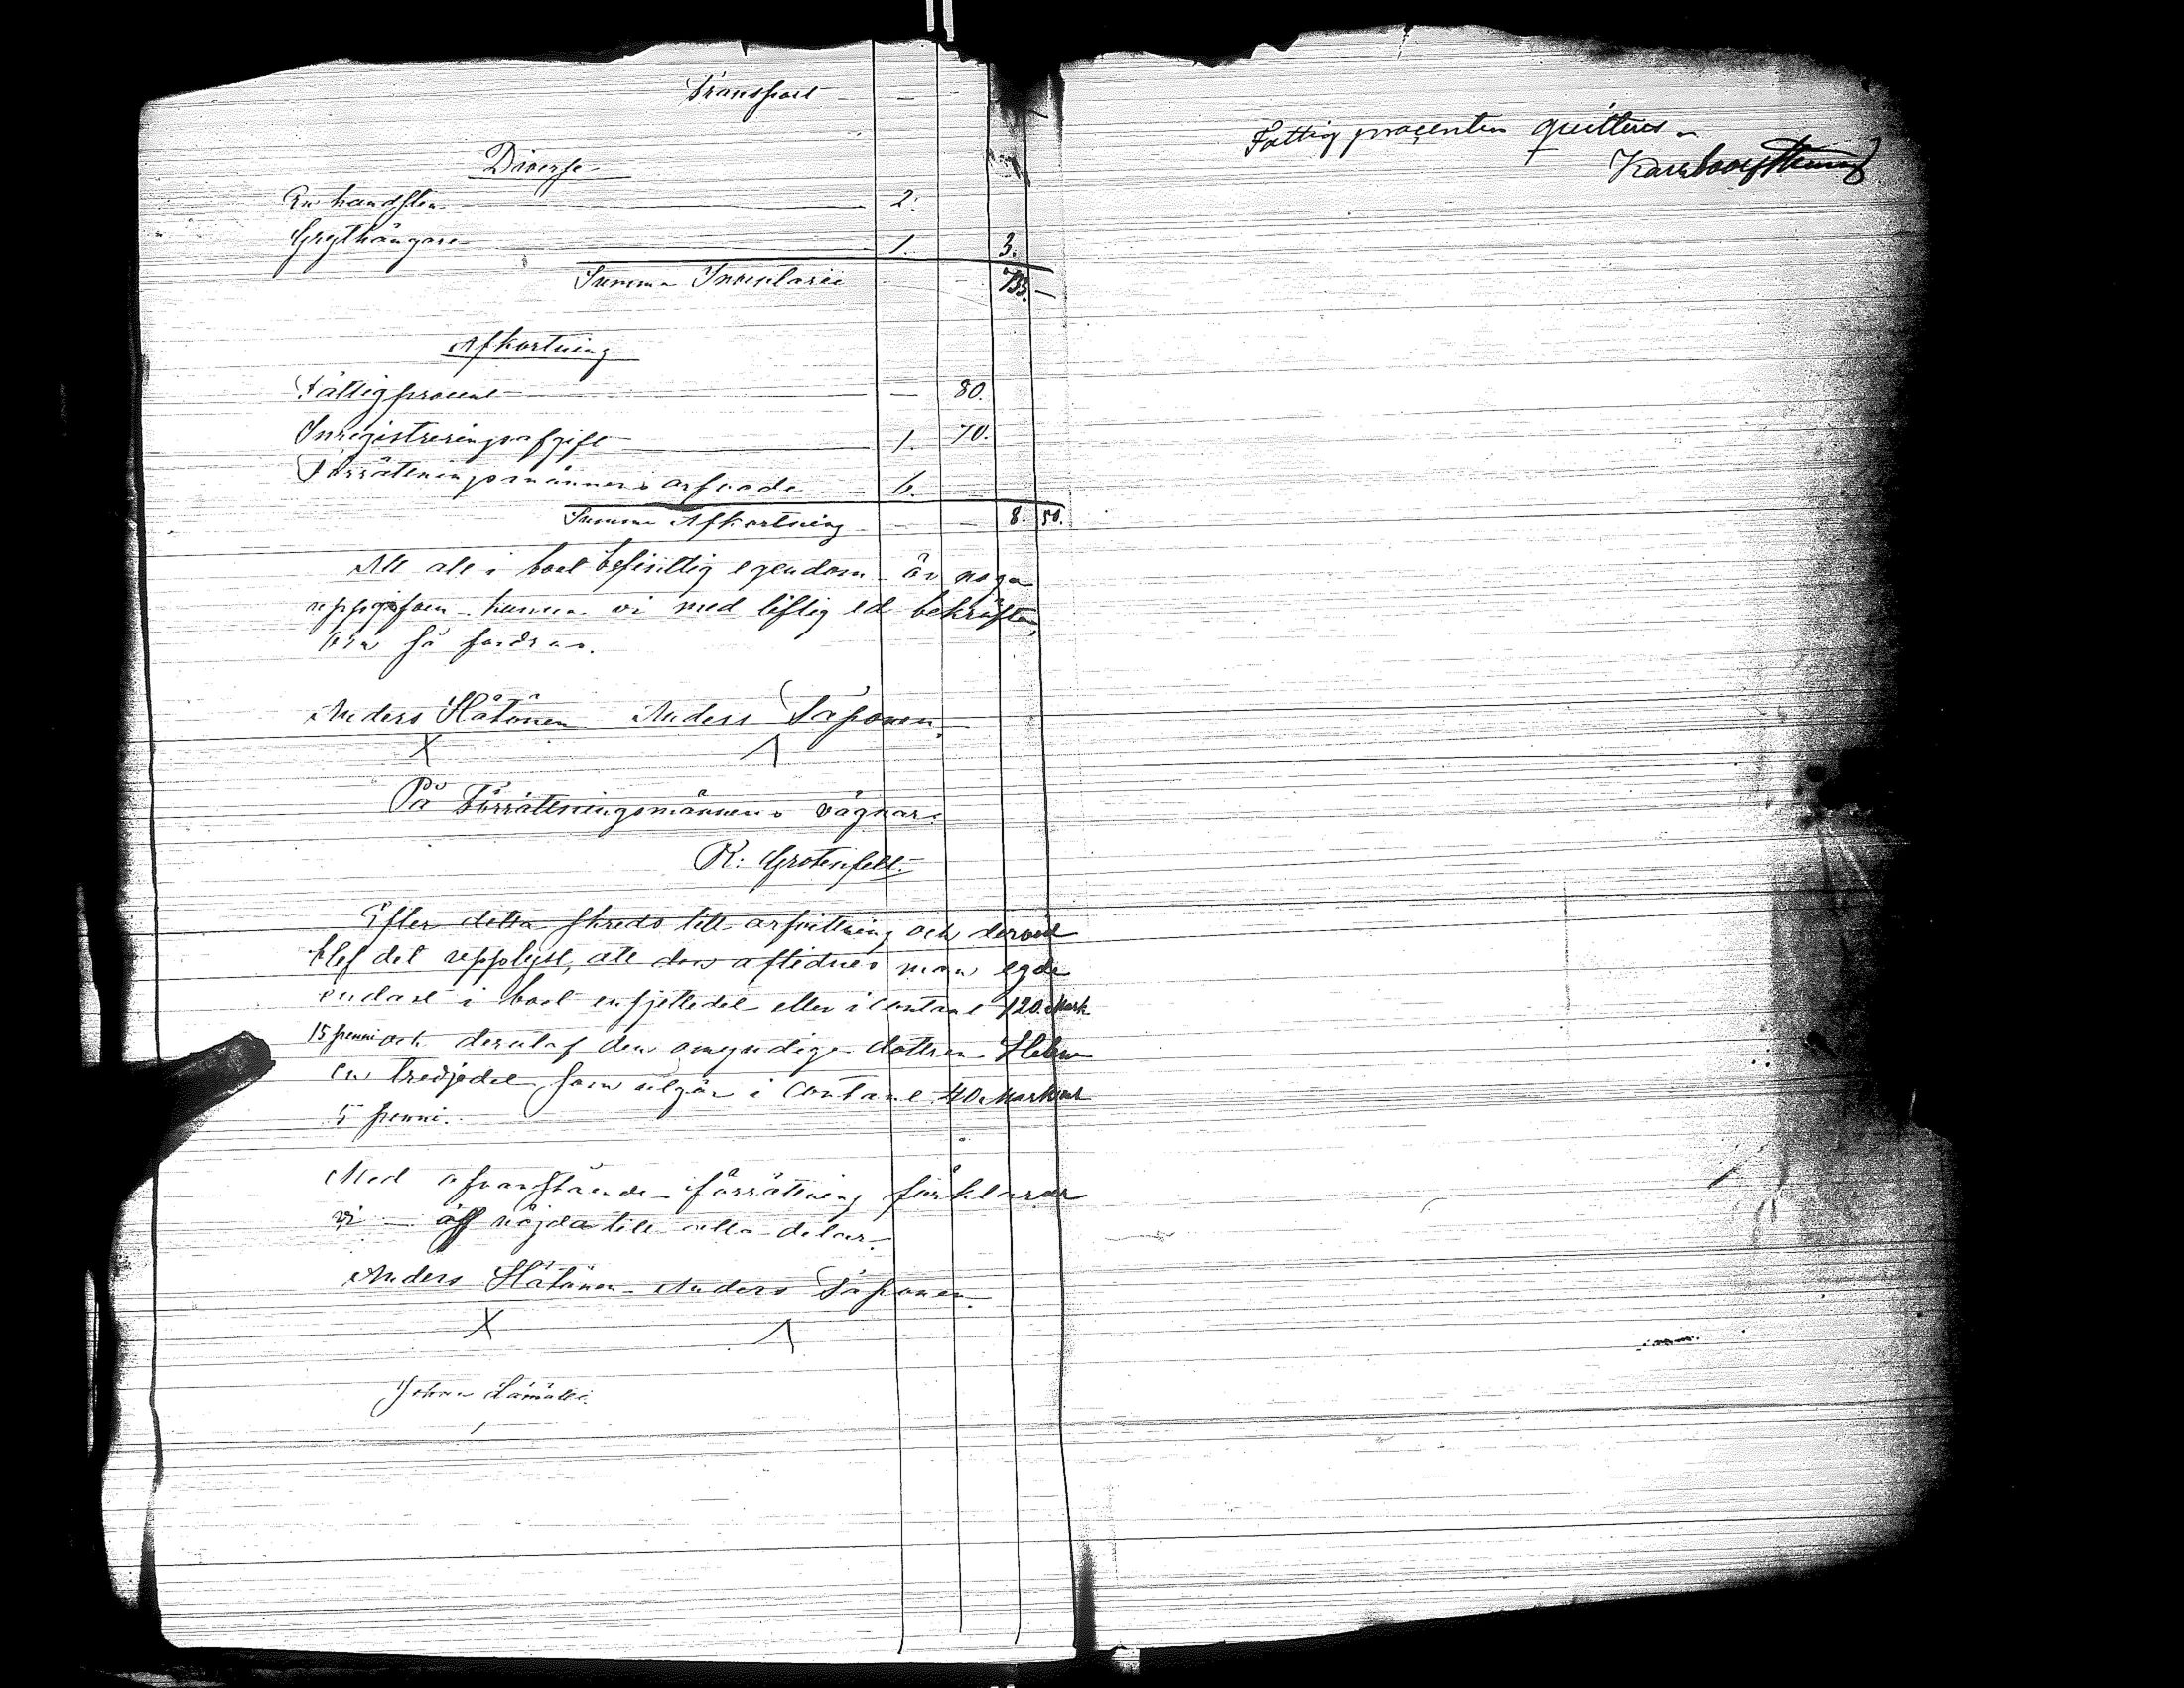 Transport —
Diverse
En handsten 2.
Grythängare 1. 3.
Summa Inventarii — 733. —
Afkortning
Fattigprocent — 80.
Inregistreringsafgift 1. 70.
Förrättningsmännens arfvode 6. —
Summa Afkortning — — 8. 50.
Att allt i boet befintlig egendom är noga
uppgifven kunna vi med liflig ed bekräfta,
om så fordras.
Anders Hätönen Anders Taponen
X Λ
På Förrättningsmännens vägnar:
R: Grotenfelt.
Efter detta skreds till arfskiftning och dervid
blef det upplyst, att den aflidnes man egde
endast i boet en sjettedel eller i contant 120 Mark
15 penni och derutaf den omyndige dottren Helena
en tredjedel som utgör i contant 40 Mark och
5 penni.
Med ofvanstående förrättning förklarar
vi oss nöjda till alla delar.
Anders Hätönen Anders Taponen
X Λ
Johan
Fattig procenten quitteras